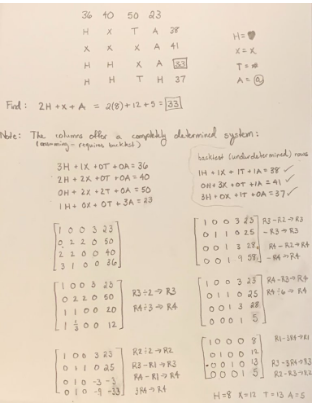 36 40 50 23
H X T A 38 H=
X X X A 41 X=X
H H X A 33 T=
H H T H 37 A=
Find: 2H + X + A = 2(8)+12+5 = 33
Note: The columns offer a completely determined system:
3H + 1X + 0T + 0A = 36
2H + 2X + 0T + 0A = 40
0H + 2X + 2T + 0A = 50
1H + 0X + 0T + 3A = 23
(underdetermined) rows
1H + 1X + 1T + 1A = 38 ✓
0H + 3X + 0T + 1A = 41 ✓
3H + 0X + 1T + 0A = 37 ✓
1 0 0 3 23
0 2 2 0 50
2 2 0 0 40
3 1 0 0 36
1 0 0 3 23 R2-R2→R3
0 1 1 0 25 -R3→R3
0 0 1 3 28 R4-R2→R4
0 0 1 9 58 -R4→R4
1 0 0 3 23
0 2 2 0 50 R3÷2→R3
1 1 0 0 20 R4÷3→R4
1 ⅓ 0 0 12
1 0 0 3 23 R4-R3→R4
0 1 1 0 25 R4÷6→R4
0 0 1 3 28
0 0 0 1 5
1 0 0 3 23 R2÷2→R2
0 1 1 0 25 R3-R1→R3
0 1 0 -3 -3 R4-R1→R4
0 1 0 -9 -33 3R4→R4
1 0 0 0 8 R1-3R4→R1
0 1 0 0 12
0 0 1 0 13 R3-3R4→R3
0 0 0 1 5 R2-R3→R2
H=8 X=12 T=13 A=5